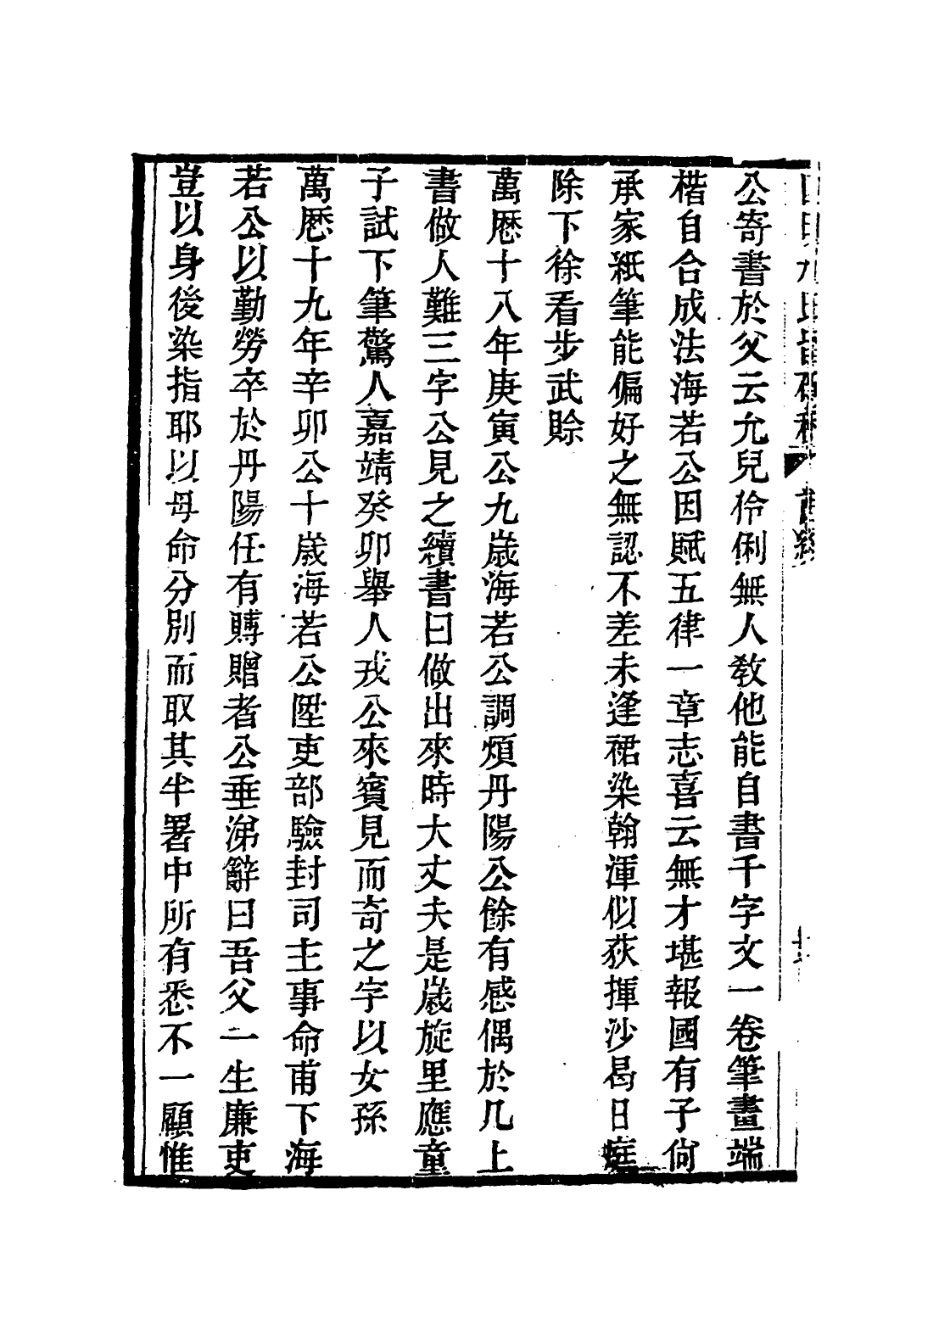 公寄書於父云允兒伶俐無人敎他能自書千字文一卷筆畫端
楷自合成法海若公因賦五律一章志喜云無才堪報國有子尙
承家紙筆能偏好之無認不差未逢裙染翰渾似荻揮沙曷日庭
除下徐看步武賒
萬厯十八年庚寅公九歲海若公調煩丹陽公餘有感偶於几上
書做人難三字公見之續書曰做出來時大丈夫是歲旋里應童
子試下筆驚人嘉靖癸卯舉人戎公來賓見而奇之字以女孫
萬厯十九年辛卯公十歲海若公陞吏部驗封司主事命甫下海
若公以勤勞卒於丹陽任有賻贈者公垂涕辭曰吾父一生廉吏
豈以身後染指耶以母命分別而取其半署中所有悉不一顧惟